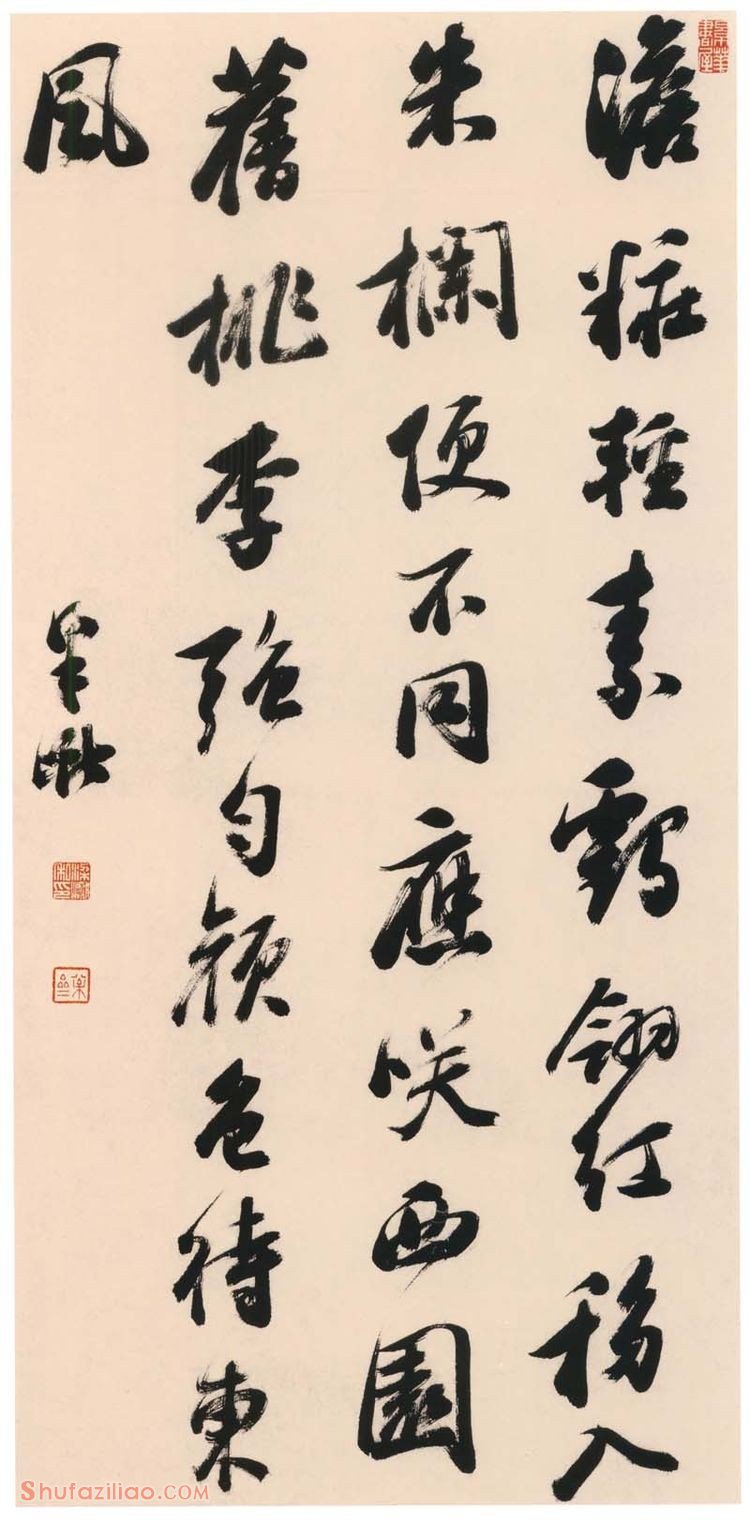 澹粧輕素鶴翎紅移入
朱欄便不同應咲西園
舊桃李強勻顏色待東
風
Shufaziliao.COM